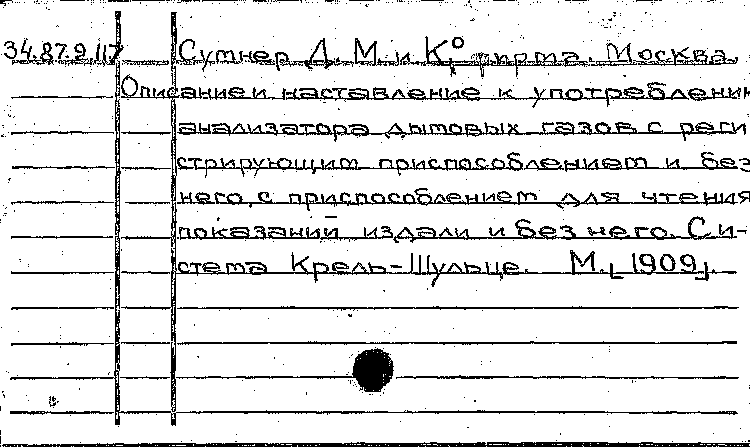 34.87.9.117 Сутнер Д. М. и К° фирма. Москва.
Описание и наставление к употреблению
анализатора дымовых газов с реги
стрирующим приспособлением и без
него, с приспособлением для чтения
показаний издали и без него. Си-
стема Крель-Шульце. М. [1909].